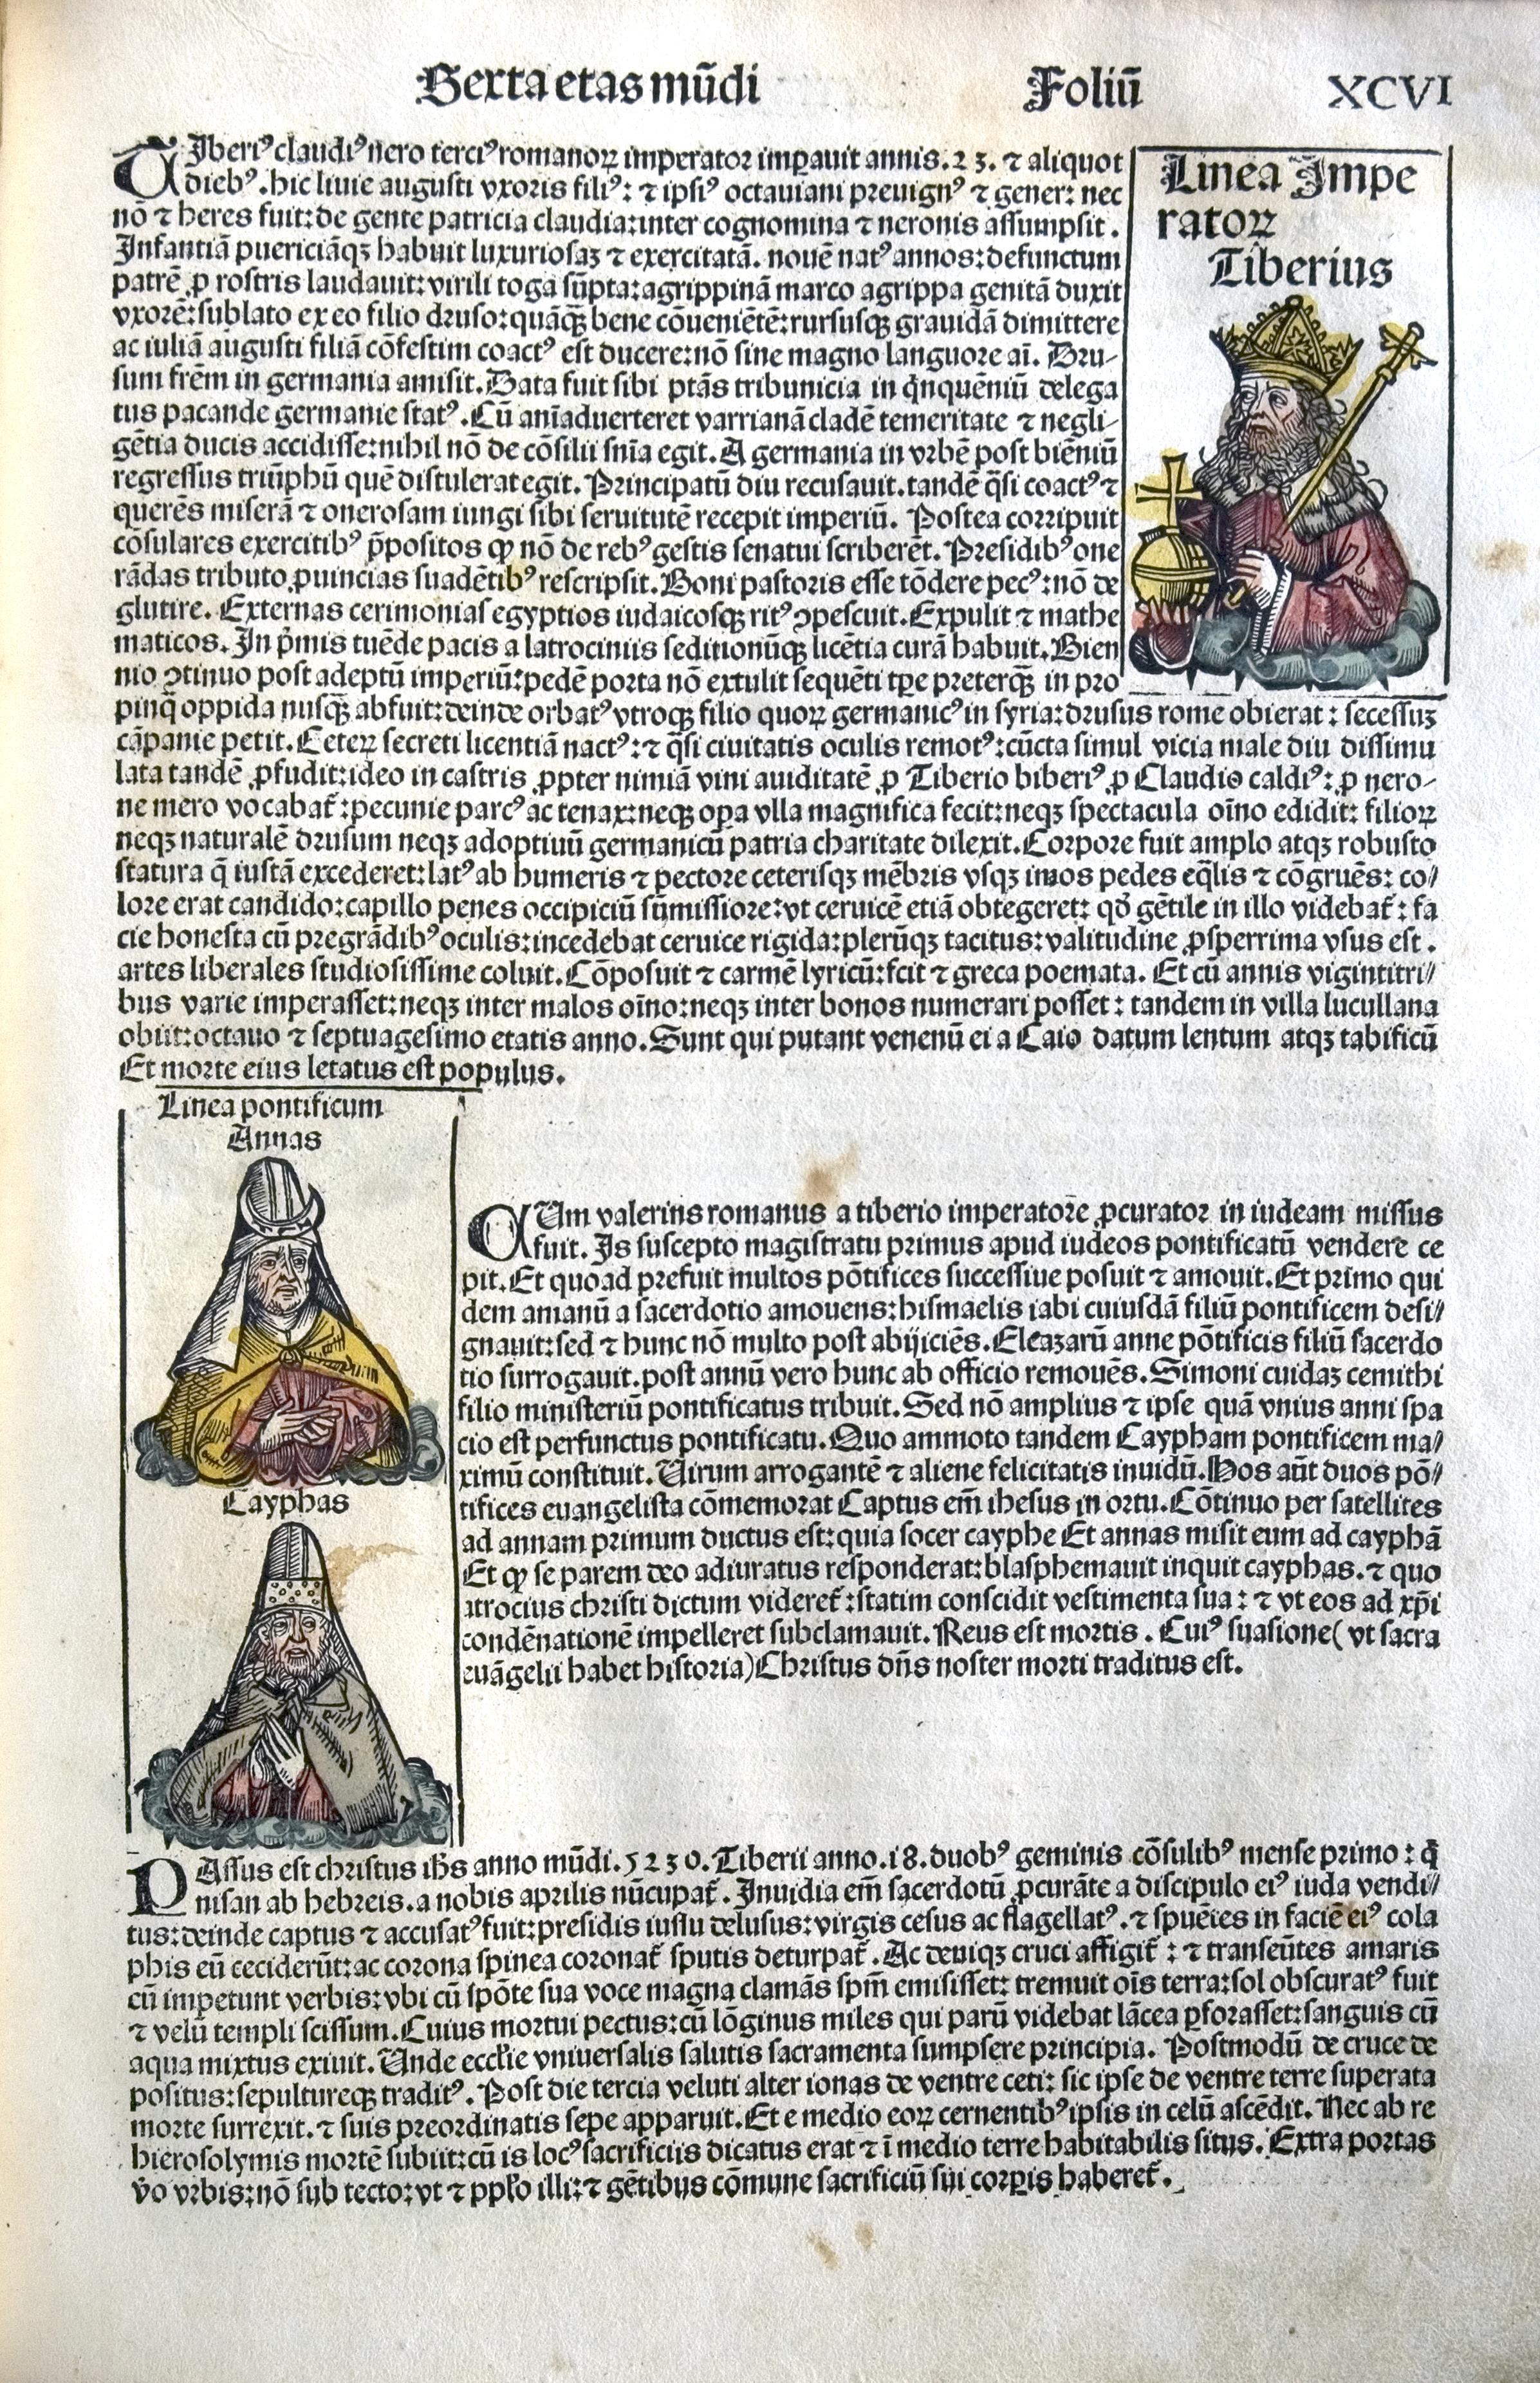 Sexta etas mũdi Foliũ XCVI
TIberiꝰ claudiꝰ nero terciꝰ romanoꝝ imperator imꝑauit annis. 23. ⁊ aliquot
diebꝰ. hic liuie augusti vxoris filiꝰ: ⁊ ipsiꝰ octauiani preuignꝰ ⁊ gener: nec
nõ ⁊ heres fuit: de gente patricia claudia: inter cognomina ⁊ neronis assumpsit.
Infantiã puericiãqꝫ habuit luxuriosaꝫ ⁊ exercitatã. nouẽ natꝰ annos: defunctum
patrẽ ꝓ rostris laudauit: virili toga sũpta: agrippinã marco agrippa genitã duxit
vxorẽ: sublato ex eo filio druso: quãqꝫ̃ bene cõueniẽtẽ: rursusqꝫ grauidã dimittere
ac iuliã augusti filiã cõfestim coactꝰ est ducere: nõ sine magno languore aĩ. Dru-
sum frẽm in germania amisit. Data fuit sibi ptãs tribunicia in q̃nquẽniũ delega
tus pacande germanie statꝰ. Cũ anĩaduerteret varrianã cladẽ temeritate ⁊ negli-
gẽtia ducis accidisse: nihil nõ de cõsilii snĩa egit. A germania in vrbẽ post biẽniũ
regressus triũphũ quẽ distulerat egit. Principatũ diu recusauit. tandẽ q̃si coactꝰ ⁊
querẽs miserã ⁊ onerosam iungi sibi seruitutẽ recepit imperiũ. Postea corripuit
cõsulares exercitibꝰ p̃positos ꝙ nõ de rebꝰ gestis senatui scriberẽt. Presidibꝰ one
rãdas tributo ꝓuincias suadẽtibꝰ rescripsit. Boni pastoris esse tõdere pecꝰ: nõ de
glutire. Externas cerimonias egyptios iudaicosqꝫ ritꝰ ꝯpescuit. Expulit ⁊ mathe
maticos. In p̃mis tuẽde pacis a latrociniis seditionũqꝫ licẽtia curã habuit. Bien
nio ꝯtinuo post adeptũ imperiũ: pedẽ porta nõ extulit sequẽti tꝑe preterqꝫ̃ in pro
pinq̃ oppida nusqꝫ̃ abfuit: deinde orbatꝰ vtroqꝫ filio quoꝝ germanicꝰ in syria: drusus rome obierat: secessuꝫ
cãpanie petit. Ceteꝝ secreti licentiã nactꝰ: ⁊ q̃si ciuitatis oculis remotꝰ: cũcta simul vicia male diu dissimu
lata tandẽ ꝓfudit: ideo in castris ꝓpter nimiã vini auiditatẽ ꝓ Tiberio biberiꝰ ꝓ Claudio caldiꝰ: ꝓ nero-
ne mero vocabat̃: pecunie parcꝰ ac tenax: neqꝫ oꝑa vlla magnifica fecit: neqꝫ spectacula oĩno edidit: filioꝝ
neqꝫ naturalẽ drusum neqꝫ adoptiuũ germanicũ patria charitate dilexit. Corpore fuit amplo atqꝫ robusto
statura q̃ iustã excederet: latꝰ ab humeris ⁊ pectore ceterisqꝫ mẽbris vsqꝫ imos pedes eq̃lis ⁊ cõgruẽs: co/
lore erat candido: capillo penes occipiciũ sũmissiore: vt ceruicẽ etiã obtegeret: qđ gẽtile in illo videbat̃: fa
cie honesta cũ pregrãdibꝰ oculis: incedebat ceruice rigida: plerũqꝫ tacitus: valitudine ꝓsperrima vsus est.
artes liberales studiosissime coluit. Cõposuit ⁊ carmẽ lyricũ: fcit ⁊ greca poemata. Et cũ annis vigintitri/
bus varie imperasset: neqꝫ inter malos oĩno: neqꝫ inter bonos numerari posset: tandem in villa lucullana
obiit: octauo ⁊ septuagesimo etatis anno. Sunt qui putant venenũ ei a Caio datum lentum atqꝫ tabificũ
Et morte eius letatus est populus.
Linea Impe
ratoꝝ
Tiberius
Linea pontificum
Annas
Cayphas
CUm valerins romanus a tiberio imperatore ꝓcurator in iudeam missus
fuit. Is suscepto magistratu primus apud iudeos pontificatũ vendere ce
pit. Et quoad prefuit multos põtifices successiue posuit ⁊ amouit. Et primo qui
dem ananũ a sacerdotio amouens: hismaelis iabi cuiusdã filiũ pontificem desi/
gnauit: sed ⁊ hunc nõ multo post abijciẽs. Eleazarũ anne põtificis filiũ sacerdo
tio surrogauit. post annũ vero hunc ab officio remouẽs. Simoni cuidaꝫ cemithi
filio ministeriũ pontificatus tribuit. Sed nõ amplius ⁊ ipse quã vnius anni spa
cio est perfunctus pontificatu. Quo ammoto tandem Caypham pontificem ma/
ximũ constituit. Uirum arrogantẽ ⁊ aliene felicitatis inuidũ. Hos aũt duos põ/
tifices euangelista cõmemorat Captus em̃ ihesus in ortu. Cõtinuo per satellites
ad annam primum ductus est: quia socer cayphe Et annas misit eum ad cayphã
Et ꝙ se parem deo adiuratus responderat: blasphemauit inquit cayphas. ⁊ quo
atrocius christi dictum videret̃: statim conscidit vestimenta sua: ⁊ vt eos ad xp̃i
condẽnationẽ impelleret subclamauit. Reus est mortis. Cuiꝰ suasione( vt sacra
euãgelii habet historia) Christus dñs noster morti traditus est.
PAssus est christus ihs̃ anno mũdi. 5230. Tiberii anno. 18. duobꝰ geminis cõsulibꝰ mense primo: q̃
nisan ab hebreis. a nobis aprilis nũcupat̃. Inuidia em̃ sacerdotũ ꝓcurãte a discipulo eiꝰ iuda vendi/
tus: deinde captus ⁊ accusatꝰ fuit: presidis iussu delusus: virgis cesus ac flagellatꝰ. ⁊ spuẽtes in faciẽ eiꝰ cola
phis eũ ceciderũt: ac corona spinea coronat̃ sputis deturpat̃. Ac deniqꝫ cruci affigit̃: ⁊ transeũtes amaris
cũ impetunt verbis: vbi cũ spõte sua voce magna clamãs spm̃ emisisset: tremuit oĩs terra: sol obscuratꝰ fuit
⁊ velũ templi scissum. Cuius mortui pectus: cũ lõginus miles qui parũ videbat lãcea ꝑforasset: sanguis cũ
aqua mixtus exiuit. Unde eccłie vniuersalis salutis sacramenta sumpsere principia. Postmodũ de cruce de
positus: sepultureqꝫ traditꝰ. Post die tercia veluti alter ionas de ventre ceti: sic ipse de ventre terre superata
morte surrexit. ⁊ suis preordinatis sepe apparuit. Et e medio eoꝝ cernentibꝰ ipsis in celũ ascẽdit. Nec ab re
hierosolymis mortẽ subiit: cũ is locꝰ sacrificiis dicatus erat ⁊ ĩ medio terre habitabilis situs. Extra portas
ṽo vrbis: nõ sub tecto: vt ⁊ ppło illi: ⁊ gẽtibus cõmune sacrificiũ sui corꝑis haberet̃.